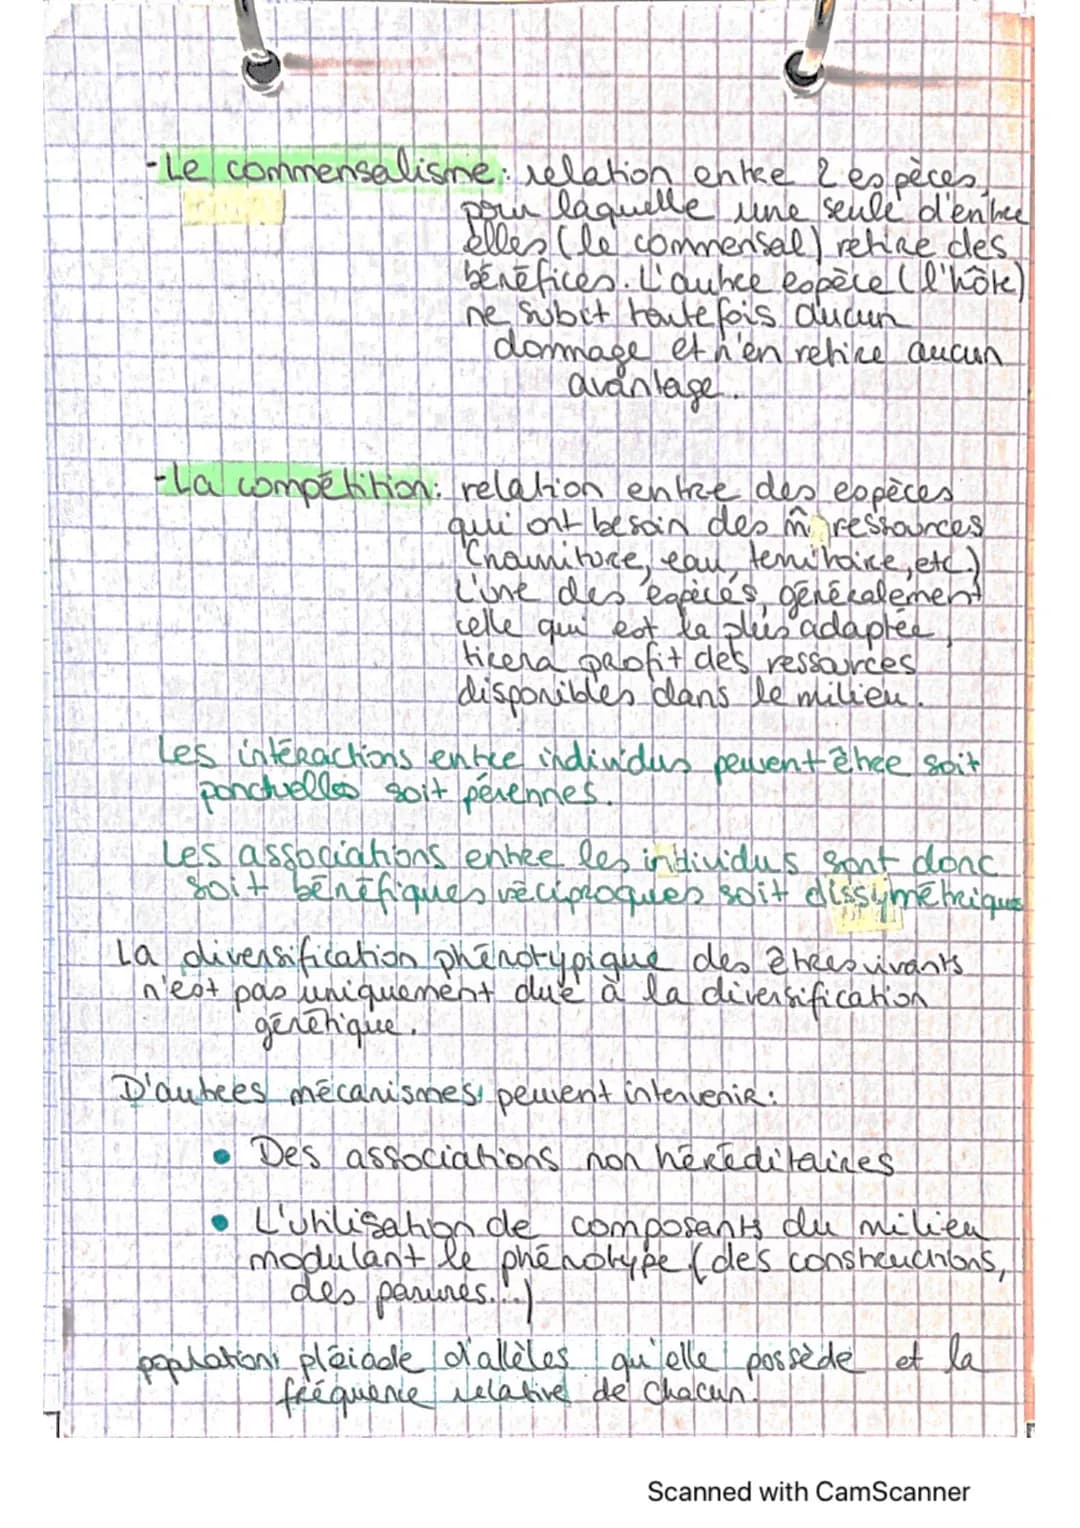 -Le commensalisme: relation entre 2 espèces
pour laquelle une seule d'entre
elles (le commensal) retire des
bénéfices. L'autre espèce (l'hôte)
ne subit toutefois aucun
dommage et n'en retire aucun
avantage.
-La compétition: relation entre des espèces
qui ont besoin des m̂ ressources
(nourriture, eau, territoire, etc.)
L'une des espèces, généralement
celle qui est la plus adaptée,
tirera profit des ressources
disponibles dans le milieu.
Les intéractions entre individus peuvent être soit
ponctuelles soit pérennes.
Les associations entre les individus sont donc
soit bénéfiques réciproques soit dissymétriques
La diversification phénotypique des êtres vivants
n'est pas uniquement due à la diversification
génétique.
D'autres mécanismes peuvent intervenir:
• Des associations non héréditaires
• L'utilisation de composants du milieu
modulant le phénotype (des constructions,
des parures...)
population: pléiade d'allèles qu'elle possède et la
fréquence relative de chacun.
Scanned with CamScanner